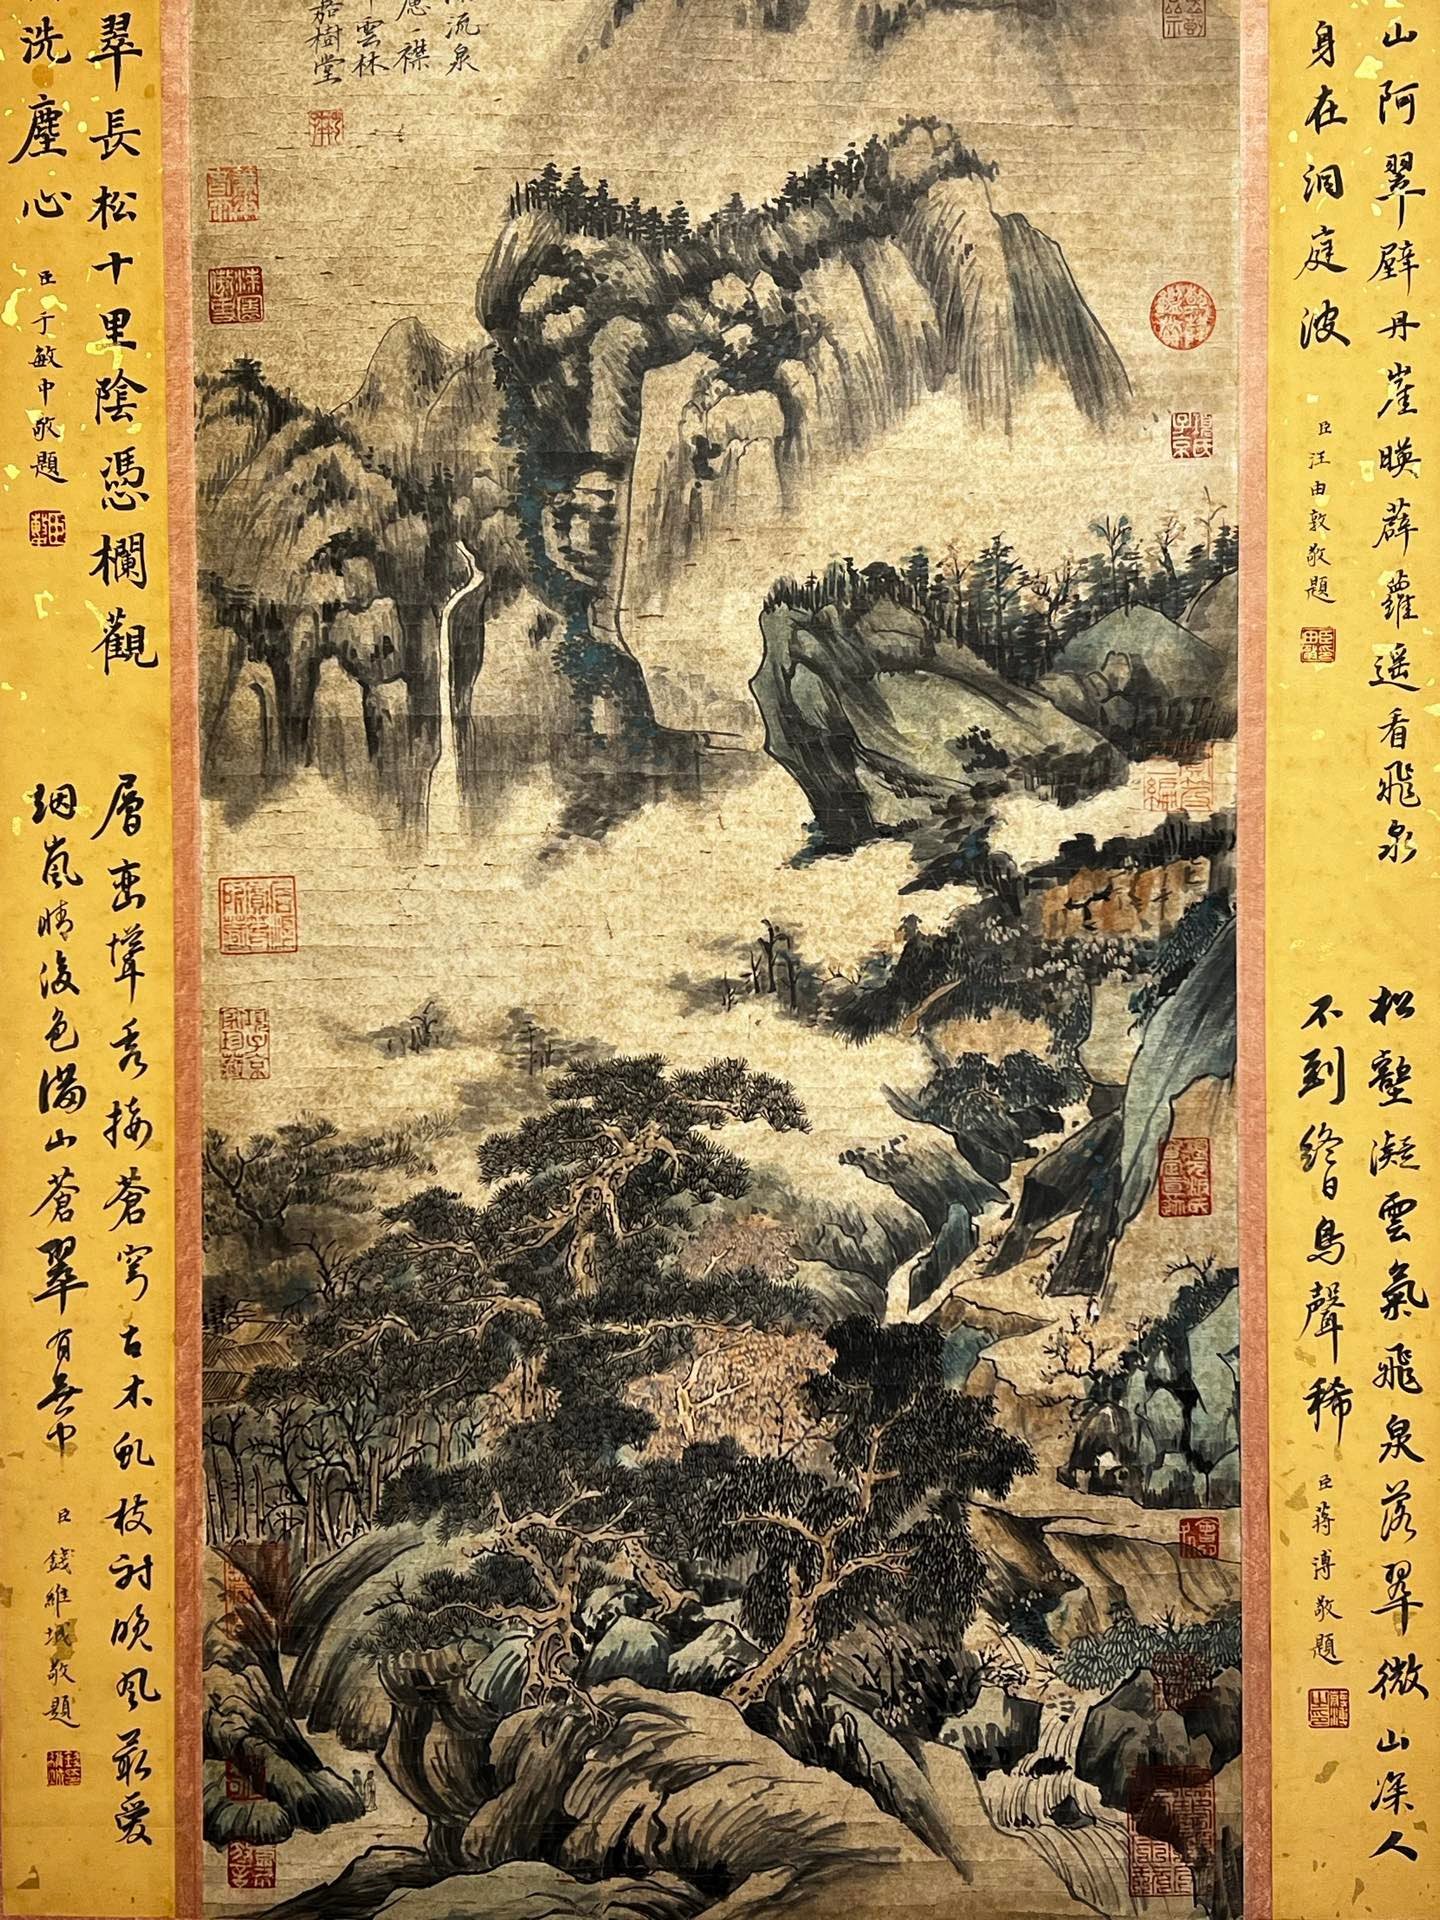 山阿翠壁丹崖暎薜蘿遥看飛泉
身在洞庭波
臣汪由敦敬題
松壑凝雲氣飛泉落翠微山深人
不到終日鳥聲稀
臣蔣溥敬題
流泉
應襟
雲林
嘉樹堂
項氏子京
項子京家珍藏
翠長松十里陰憑欄觀
洗塵心
臣于敏中敬題
層巒聳秀接蒼穹古木虬枝對晚風最愛
烟嵐晴後色滿山蒼翠有無中
臣錢維城敬題